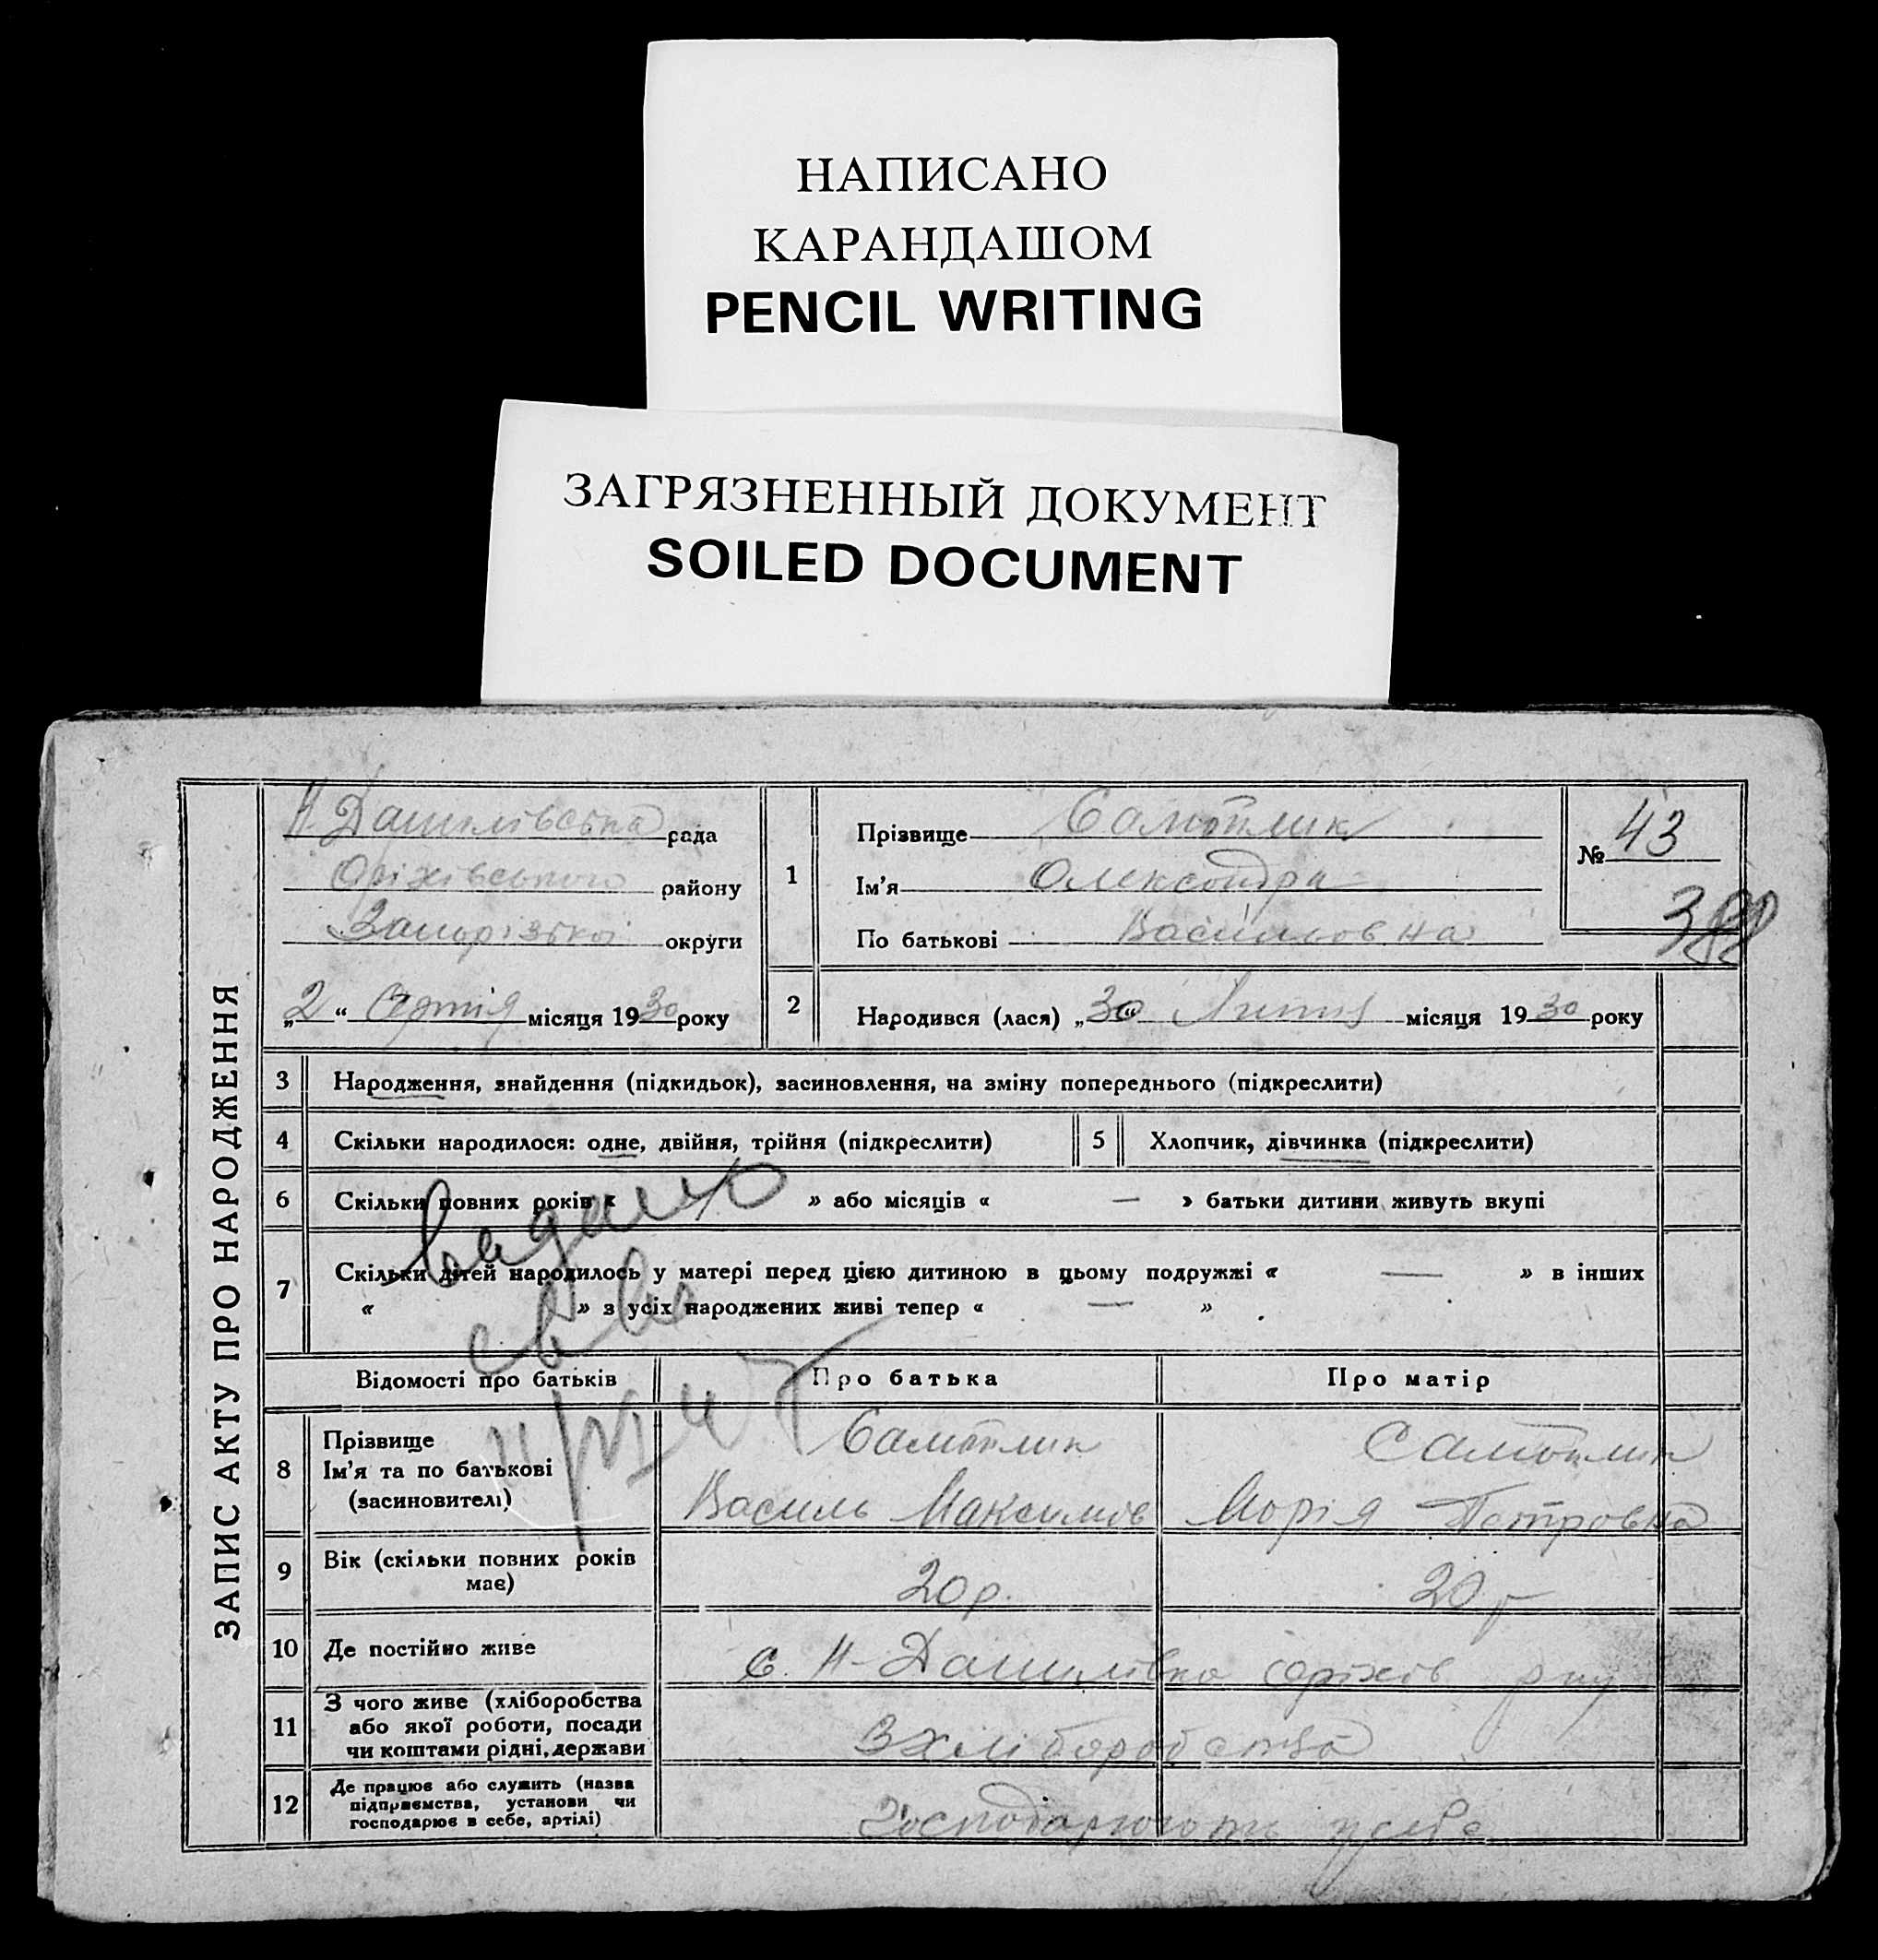 НАПИСАНО
КАРАНДАШОМ
PENCIL WRITING
ЗАГРЯЗНЕННЫЙ ДОКУМЕНТ
SOILED DOCUMENT
ЗАПИС АКТУ ПРО НАРОДЖЕННЯ
Н Данилівська рада
Оріхівського району
Запорізької округи
„2“ Серпня місяця 1930 року
1 Прізвище Самотлик
Ім'я Олександра
По батькові Васильовна
№ 43
388
2 Народився (лася) „30“ Липня місяця 1930 року
3 Народження, знайдення (підкидьок), засиновлення, на зміну попереднього (підкреслити)
4 Скільки народилося: одне, двійня, трійня (підкреслити) 5 Хлопчик, дівчинка (підкреслити)
6 Скільки повних років « » або місяців « — » батьки дитини живуть вкупі
видано
7 Скільки дітей народилось у матері перед цією дитиною в цьому подружжі « — » в інших
« » з усіх народжених живі тепер « — »
св во
Відомості про батьків Про батька Про матір
8 Прізвище
Ім'я та по батькові
(засиновителі)
Самотлик
Василь Максимов
Самотлик
Марія Петровна
9 Вік (скільки повних років
має)
20 р. 20 р
10 Де постійно живе с. Н-Данилівка Оріхів р ну
11 З чого живе (хліборобства
або якої роботи, посади
чи коштами рідні, держави
З хліборобства
12 Де працює або служить (назва
підприємства, установи чи
господарює в себе, артілі)
Господарюють у себе